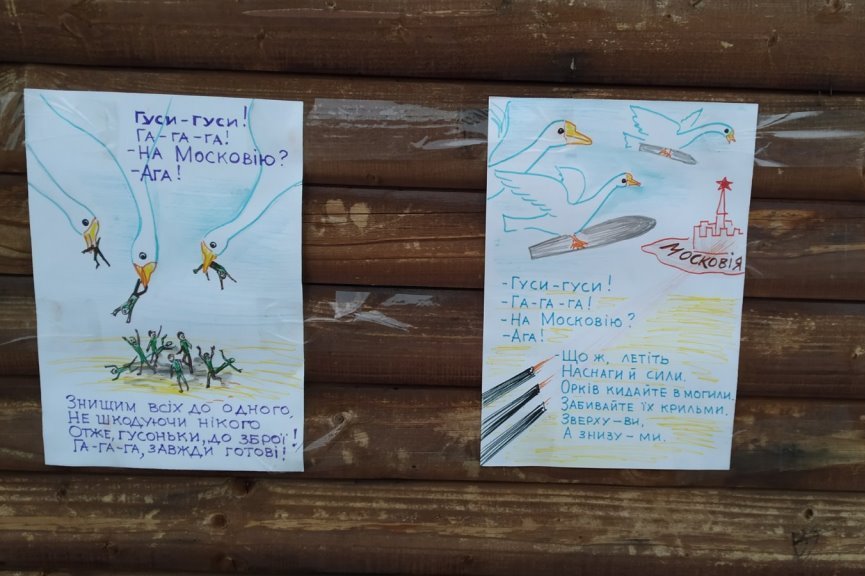 Гуси-гуси!
Га-га-га!
-На Московію?
-Ага!
Знищим всіх до одного,
Не шкодуючи нікого
Отже, гусоньки, до зброї!
Га-га-га, завжди готові!
Московія
-Гуси-гуси!
-Га-га-га!
-На Московію?
-Ага!
-Що ж, летіть
Наснаги й сили.
Орків кидайте в могили.
Забивайте їх крильми.
Зверху-ви,
А знизу-ми.